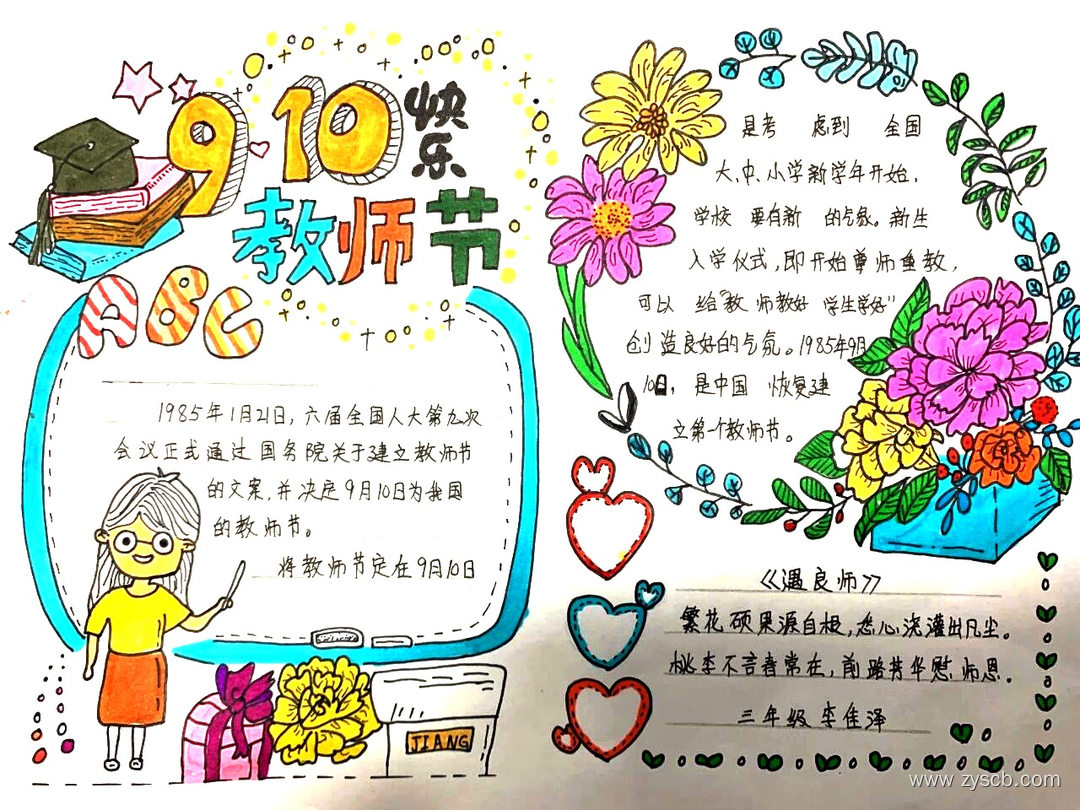 9 10 快乐
教师节
ABC
1985年1月21日,六届全国人大第九次
会议正式通过国务院关于建立教师节
的文案,并决定9月10日为我国
的教师节。
将教师节定在9月10日
JIANG
是考 虑到 全国
大、中、小学新学年开始,
学校 要有新 的气象。新生
入学仪式,即开始尊师重教,
可以 给“教 师教好 学生学好”
创造良好的气氛。1985年9月
10日, 是中国 恢复建
立第一个教师节。
《遇良师》
繁花硕果源自根,悉心浇灌出凡尘。
桃李不言春常在,前路芳华慰师恩。
三年级 李佳泽
www.zyscb.com